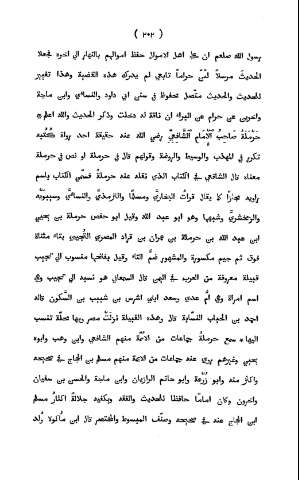 ( ٢٠٢ )
رسول الله صلعم ان على اهل الاموال حفظ اموالهم بالنهار الى آخره فجعلا
الحديث مرسلا لانّ حراما تابعى لم يدرك هذه القضية وهذا تغيير
للحديث والحديث متّصل محفوظ فى سنن ابى داود والنسائى وابى ماجة
وآخرين عن حرام عن البراء ان ناقة له دخلت وذكر الحديث والله اعلم ۞
حَرْمَلة صاحبُ الإمام الشافعى رضى الله عنه حقيقة احد رواة كُتُبه
تكرر فى المهذب والوسيط والروضة وقولهم قال فى حرملة او نص فى حرملة
معناه قال الشافعى فى الكتاب الذى نقله عنه حرملة فسمّى الكتاب باسم
راويه مجازا كما يقال قرأتُ البخارىَّ ومسلمًا والترمذىَّ والنسائىَّ وسيبَوَيْه
والزمخشرىَّ وشبهها وهو ابو عبد الله وقيل ابو حفص حرملة بن يحيى
ابن عبد الله بن حرملة بن عمران بن قراد المصرى التُّجيبى بتاء مثناة
فوق ثم جيم مكسورة والمشهور ضمّ التاء وقيل بفتحها منسوب الى تجيب
قبيلة معروفة من العرب قال السمعانى هو نسبة الى تجيب وهى
اسم امرأة وهى امّ عدى وسعد ابنى اشرس بن شبيب بن السَّكون قاله
احمد بن الحباب النسّابة قال وهذه القبيلة نزلتْ مصر وبها محلّة تنسب
اليها سمع حرملةُ جماعات من الائمّة منهم الشافعى وابى وهب وايوب
يحيى وغيرهم روى عنه جماعات من الائمة منهم مسلم بن الحجاج فى صحيحه
واكثر عنه وابو زُرْعة وابو حاتم الرازيان وابى ماجة والحسن بن سفيان
وآخرون وكان امامًا حافظًا للحديث والفقه ويكفيه جلالةً اكثارُ مسلم
ابن الحجاج عنه فى صحيحه وصنّف المبسوط والمختصر قال ابن ماكولا وُلد